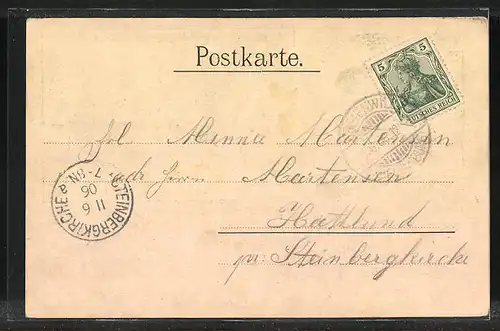 Postkarte.
5 5
DEUTSCHES REICH
Frl. Minna Martensen
adr. Herrn Martensen
Hattlund
pr. Steinbergkirche
STEINBERGKIRCHE
11 6
06
7-8N